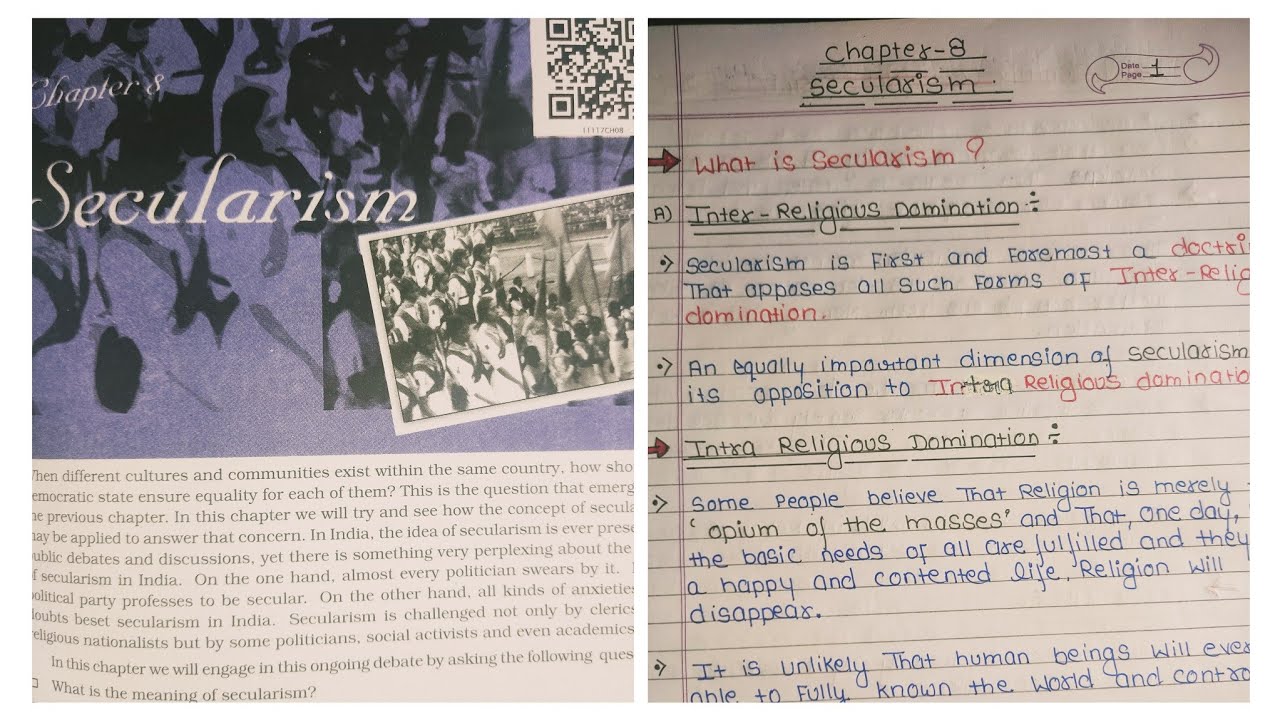 Chapter 8
11117CH08
Secularism
When different cultures and communities exist within the same country, how sho
emocratic state ensure equality for each of them? This is the question that emerg
he previous chapter. In this chapter we will try and see how the concept of secula
may be applied to answer that concern. In India, the idea of secularism is ever prese
ublic debates and discussions, yet there is something very perplexing about the
f secularism in India. On the one hand, almost every politician swears by it.
political party professes to be secular. On the other hand, all kinds of anxieties
doubts beset secularism in India. Secularism is challenged not only by clerics
religious nationalists but by some politicians, social activists and even academics
In this chapter we will engage in this ongoing debate by asking the following ques
What is the meaning of secularism?
Chapter-8
Secularism
Date
Page 1
What is Secularism?
A) Inter-Religious Domination:
Secularism is First and Foremost a doctri
That opposes all such Forms of Inter-Relig
domination.
An equally important dimension of secularism
its opposition to Intra Religious dominatio
Intra Religious Domination:
Some People believe That Religion is merely
'opium of the masses' and That, one day,
the basic needs of all are fulfilled and they
a happy and contented life, Religion will
disappear.
It is unlikely That human beings will ever
able to Fully known the World and contro